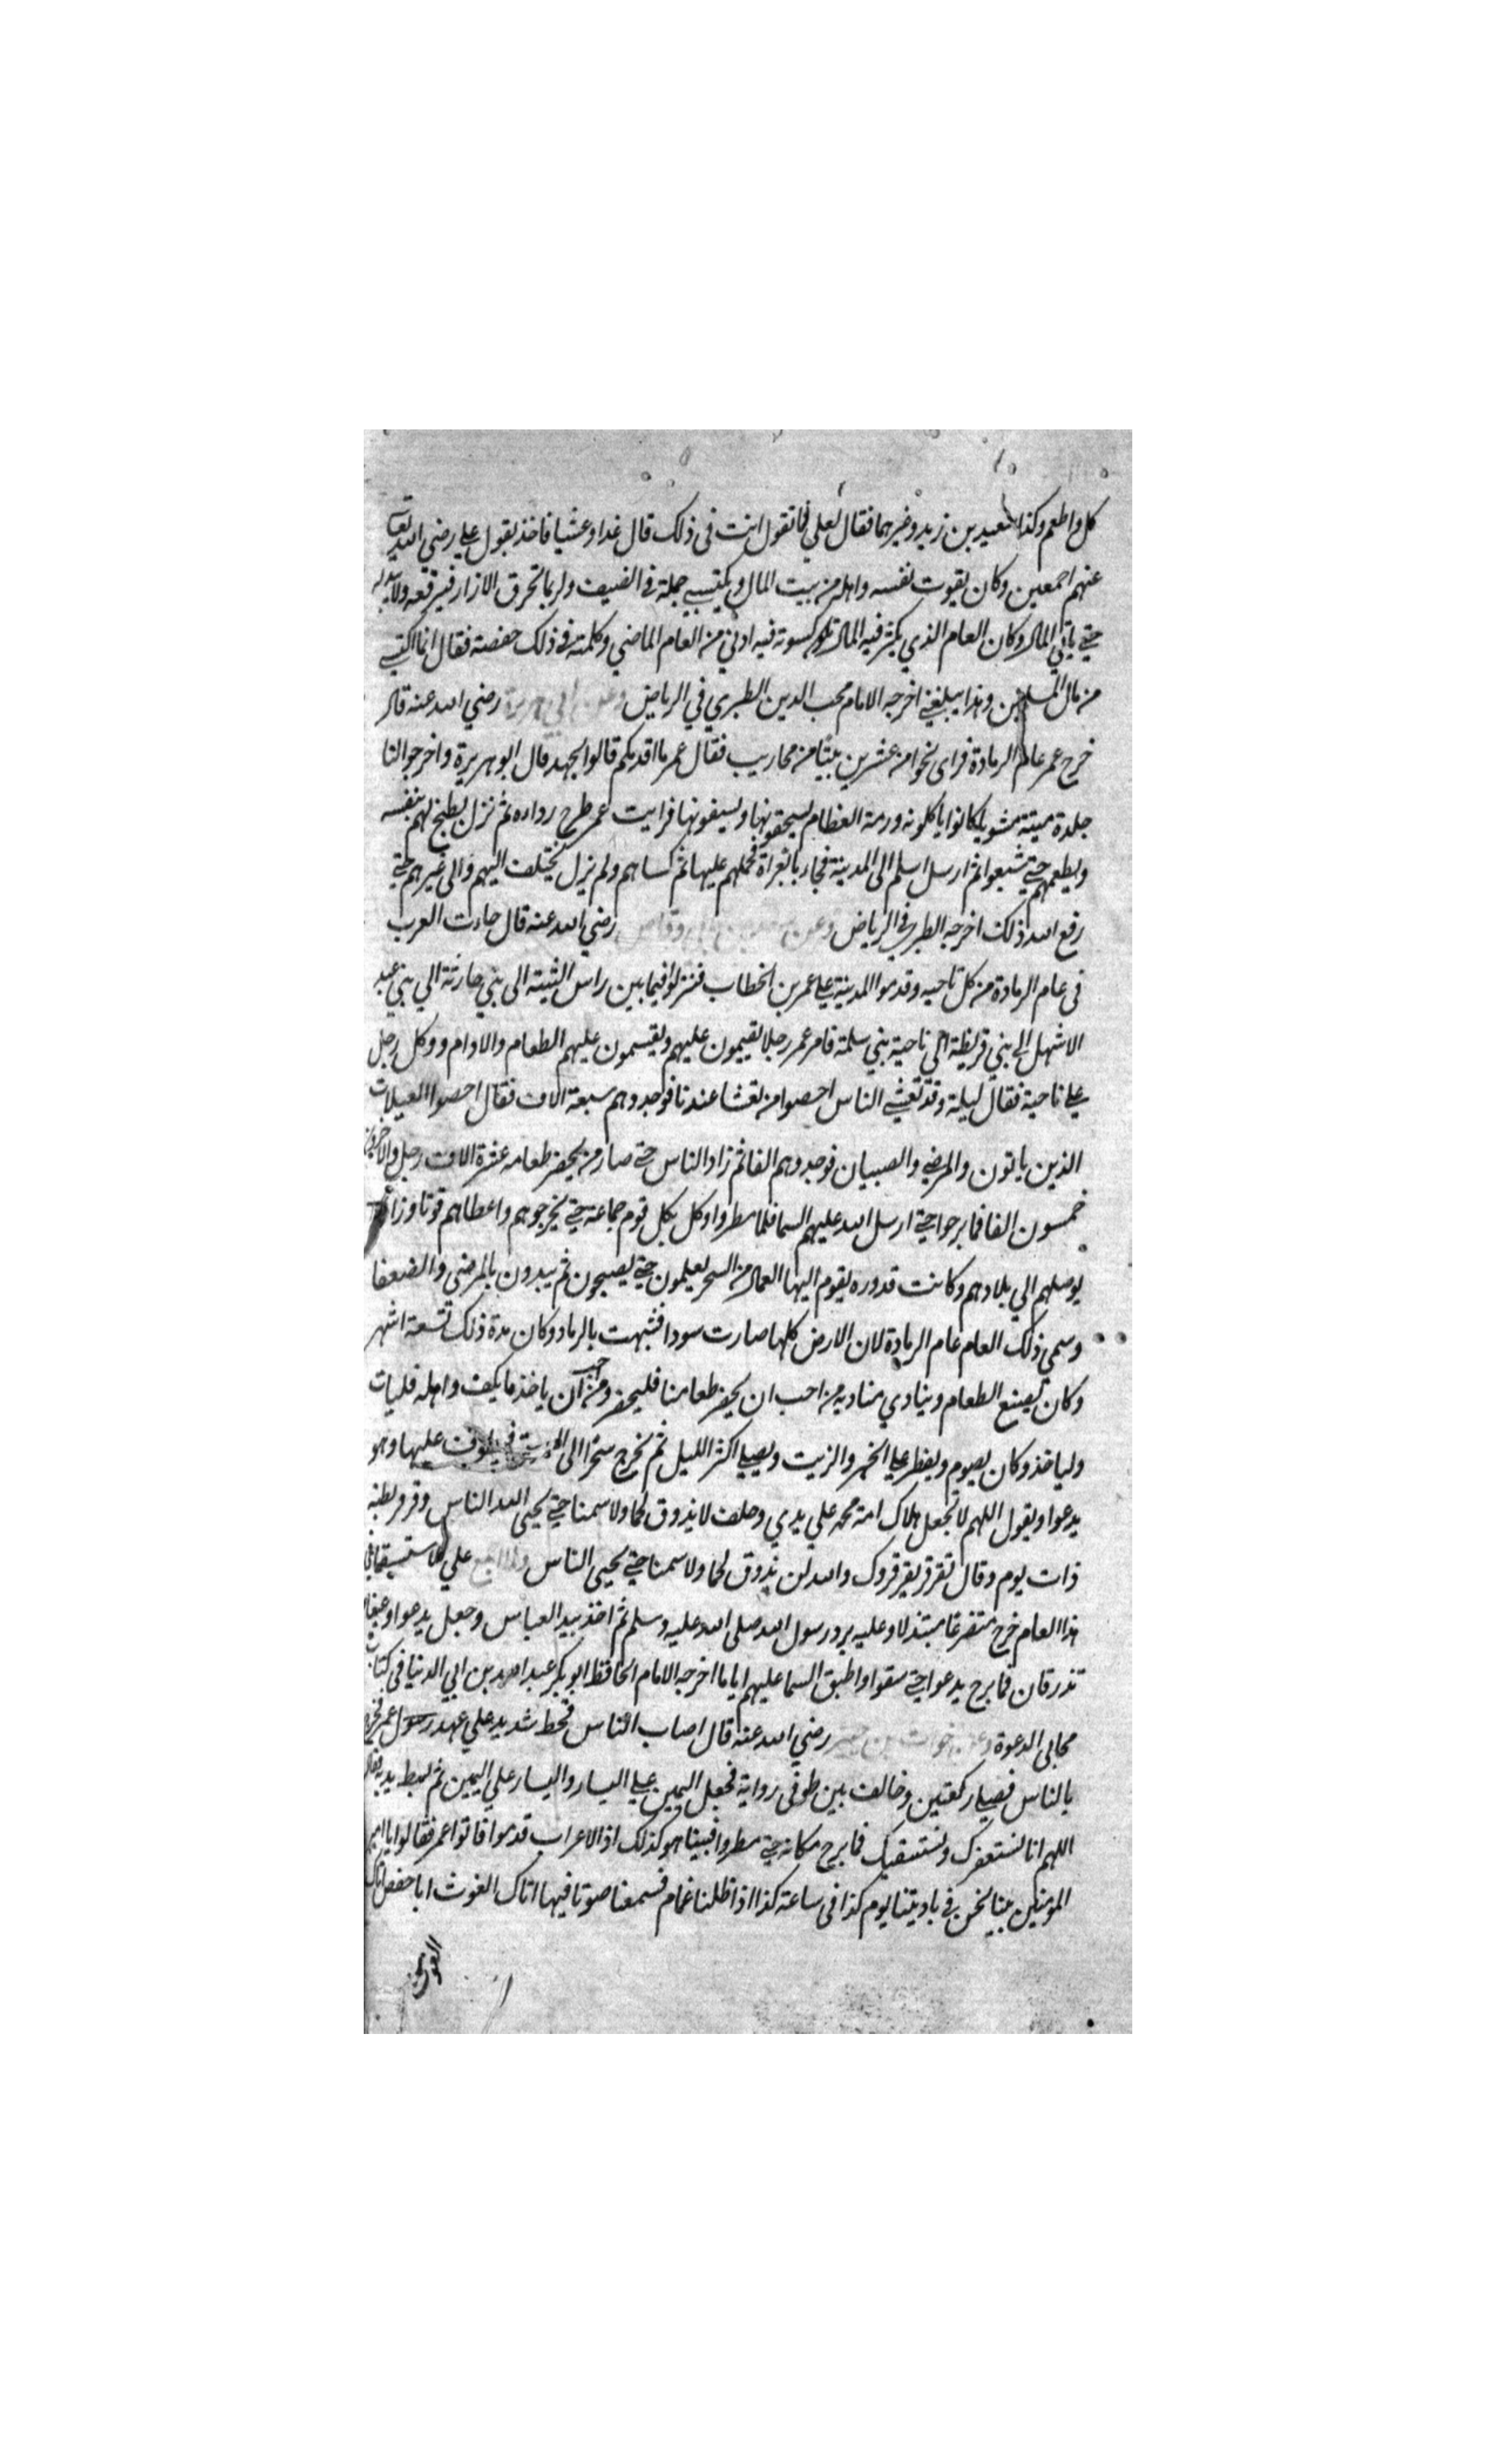 كل واطعم وكذا سعيد بن زيد وغيرهما فقال لعلي فما تقول انت في ذلك قال غدا وعشيا فاخذ بقول علي رضي الله تعالى
عنهم اجمعين وكان يقوت نفسه واهله من بيت المال ويكتسي حلة في الصيف ولربما تخرق الازار فيرقعه ولا يبدله
حتى ياتي المال وكان العام الذي يكثر فيه المال كسوته فيه ادنى من العام الماضي وكلمته في ذلك حفصة فقال انما اكتسي
من مال المسلمين وهذا يبلغني اخرجه الامام محب الدين الطبري في الرياض وعن ابي هريرة رضي الله عنه قال
خرج عمر عام الرمادة فراى نحوا من عشرين بيتا من محاريب فقال عمر ما اقدمكم قالوا الجهد قال ابو هريرة واخرجوا لنا
جلدة ميتة مشويا كانوا ياكلونه ورمة العظام يسحقونها ويسفونها فرايت عمر طرح رداءه ثم نزل يطبخ لهم بنفسه
ويطعمهم حتى شبعوا ثم ارسل اسلم الى المدينة فجاء بابعراة فحملهم عليها ثم كساهم ولم يزل يختلف اليهم والى غيرهم حتى
رفع الله ذلك اخرجه الطبري في الرياض وعن بن ابي وقاص رضي الله عنه قال جاءت العرب
في عام الرمادة من كل ناحيه وقدموا المدينة على عمر بن الخطاب فنزلوا فيما بين راس الثنية الى بني حارثة الي بني عبد
الاشهل الى بني قريظة الى ناحية بني سلمة فامر عمر رجلا يقيمون عليهم ويقسمون عليهم الطعام والادام ووكل رجل
على ناحية فقال ليلة وقد تعشى الناس احصوا من تعشا عندنا فوجدوهم سبعة الاف فقال احصوا العيلات
الذين ياتون والمرضى والصبيان فوجدوهم الفا ثم زاد الناس حتى صار من يحضر طعامه عشرة الاف رجل والاخرون
خمسون الفا فما برحوا حتى ارسل الله عليهم السما فلما مطروا وكل بكل قوم جماعة حتى يخرجوهم واعطاهم قوتا وزادا
يوصلهم الي بلادهم وكانت قدوره يقوم اليها العمال من السحر يعلمون حتى يصبحون ثم يبدون بالمرضى والضعفا
وسمي ذلك العام عام الرمادة لان الارض كلها صارت سودا فشبهت بالرماد وكان مدة ذلك تسعة اشهر
وكان يصنع الطعام وينادي مناديه من احب ان يحضر طعامنا فليحضر ومن احب ان ياخذ ما يكف واهله فليات
ولياخذ وكان يصوم ويفطر على الخبز والزيت ويصلي اكثر الليل ثم يخرج سحرا الى فيطوف عليها وهو
يدعوا ويقول اللهم لا تجعل هلاك امة محمد علي يدي وحلف لا يذوق لحما ولا سمنا حتى يحيى الله الناس وقرقر بطنه
ذات يوم وقال تقرقر بقرقروك والله لن نذوق لحما ولا سمنا حتى يحيى الناس ولما اجمع علي الاستسقا في
هذا العام خرج متضرعا مبتذلا وعليه برد رسول الله صلى الله عليه وسلم ثم اخذ بيد العباس وجعل يدعوا وعيناه
تذرفان فما برح يدعوا حتى سقوا واطبق السما عليهم اياما اخرجه الامام الحافظ ابو بكر عبد الله بن ابي الدنيا في كتاب
مجابي الدعوة وعن خوات بن جبير رضي الله عنه قال اصاب الناس قحط شديد علي عهد رسول عمر فخرج
بالناس فصلى ركعتين وخالف بين طرفي رداية فجعل اليمين على اليسار واليسار علي اليمين ثم بسط يديه فقال
اللهم انا نستغفرك ونستسقيك فما برح مكانه حتى مطروا فبينا هو كذلك اذا الاعراب قدموا فاتوا عمر فقالوا يا امير
المؤمنين بينا نحن في باديتنا يوم كذا في ساعة كذا اذ اظلنا غمام فسمعنا صوتا فيها اتاك الغوث ابا حفص اتاك
الغوث